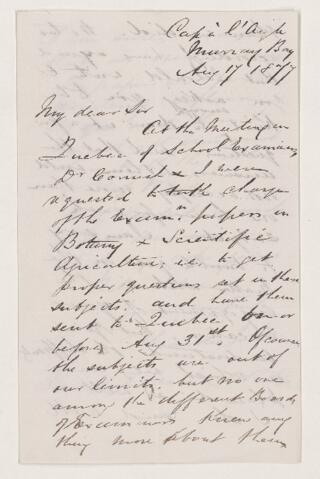 Cap à l'Aigle
Murray Bay
Aug 17 1877
My dear Sir
At the Meeting in
Quebec of School Examiners
Dr Cornish & I were
requested to take charge
of the Examn papers in
Botany & Scientific
Agriculture, i.e. to get
proper questions set in these
subjects, and have them
sent to Quebec on or
before Aug 31st. Of course
the subjects are out of
our limits, but no one
among the different Boards
of Examiners knew any
thing more about them